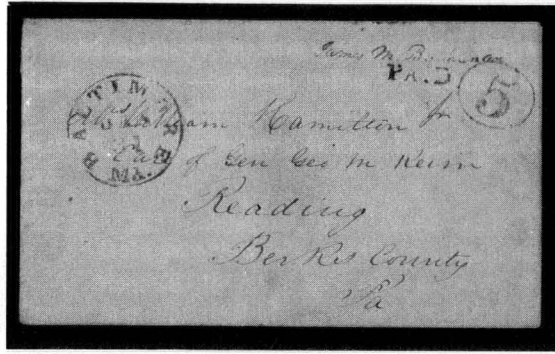 James M. Buchanan
PAID
5
BALTIMORE
MD.
William Hamilton Jr
Care of Gen Geo M Keim
Reading
Berks County
Pa